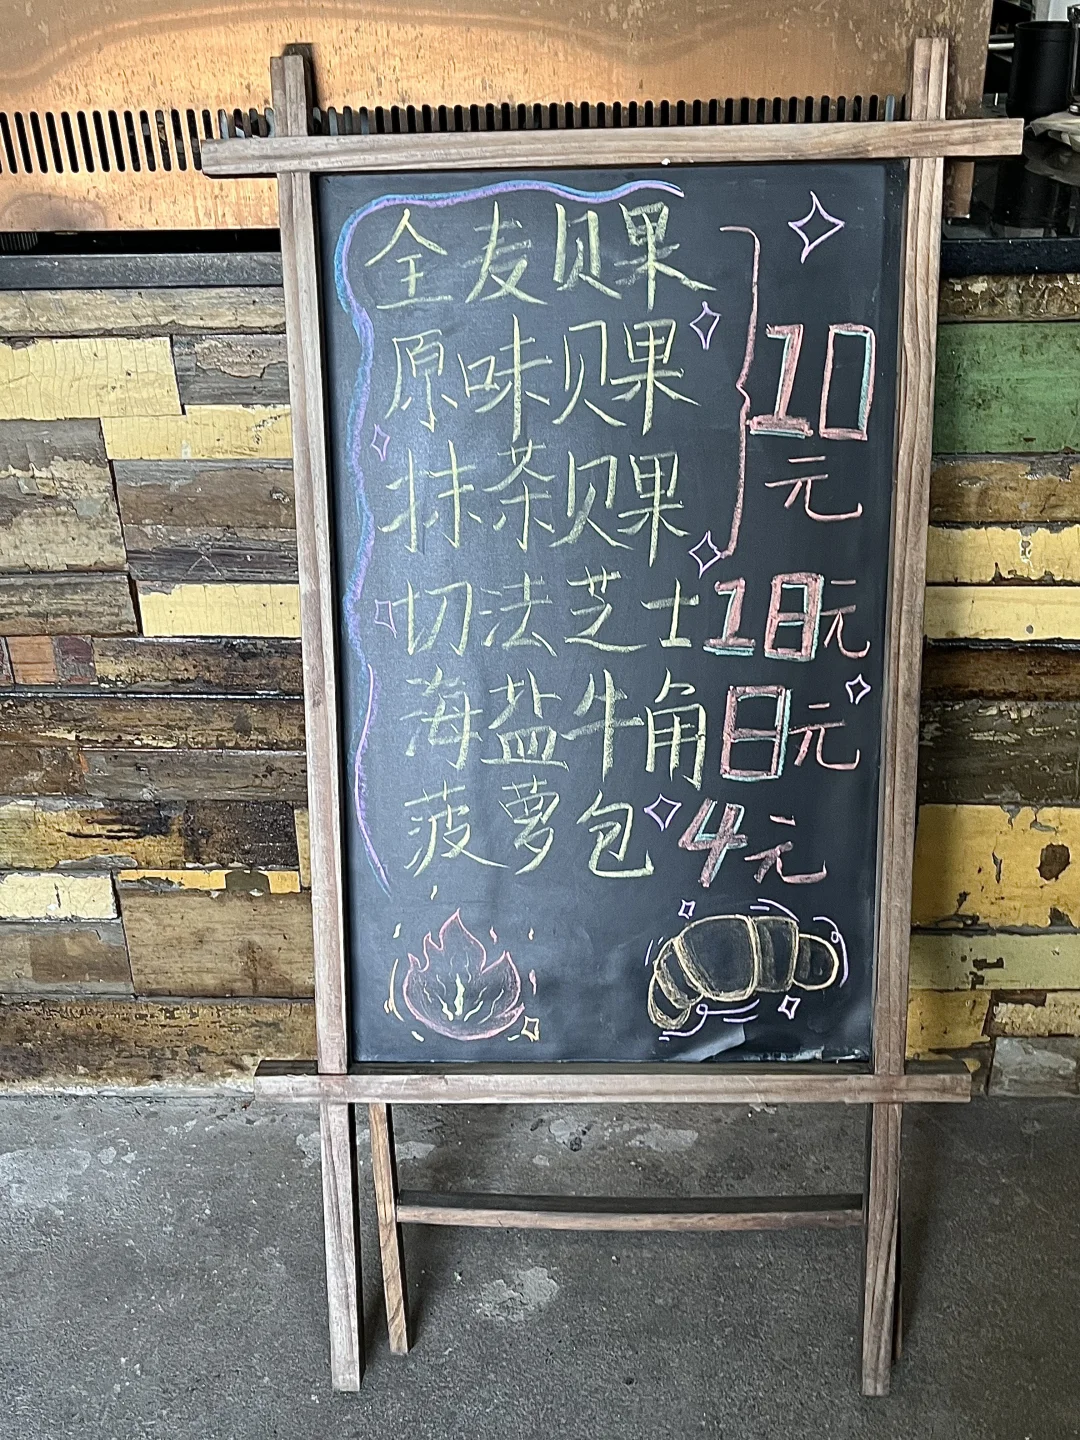 全麦贝果
原味贝果
抹茶贝果
10
元
切法芝士18元
海盐牛角8元
菠萝包4元